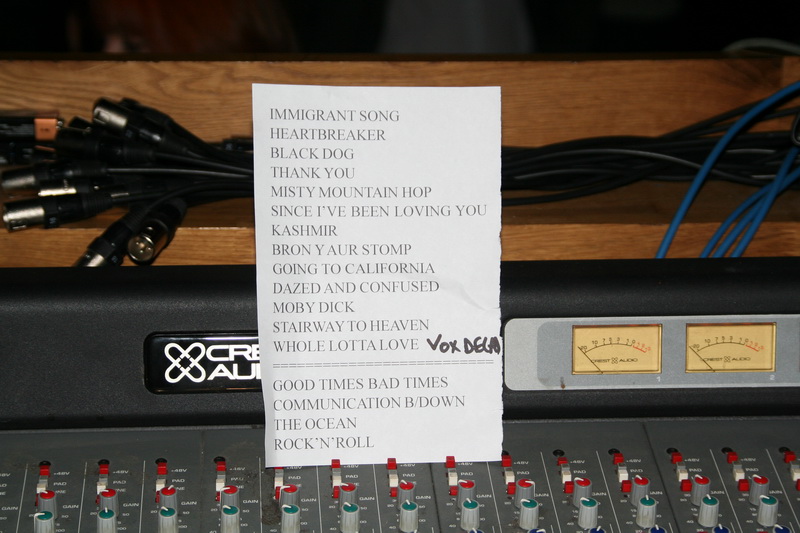 IMMIGRANT SONG
HEARTBREAKER
BLACK DOG
THANK YOU
MISTY MOUNTAIN HOP
SINCE I'VE BEEN LOVING YOU
KASHMIR
BRON Y AUR STOMP
GOING TO CALIFORNIA
DAZED AND CONFUSED
MOBY DICK
STAIRWAY TO HEAVEN
WHOLE LOTTA LOVE VOX
GOOD TIMES BAD TIMES
COMMUNICATION B/DOWN
THE OCEAN
ROCK'N'ROLL
CREST AUDIO
CREST AUDIO
-48V
PAD
GAIN